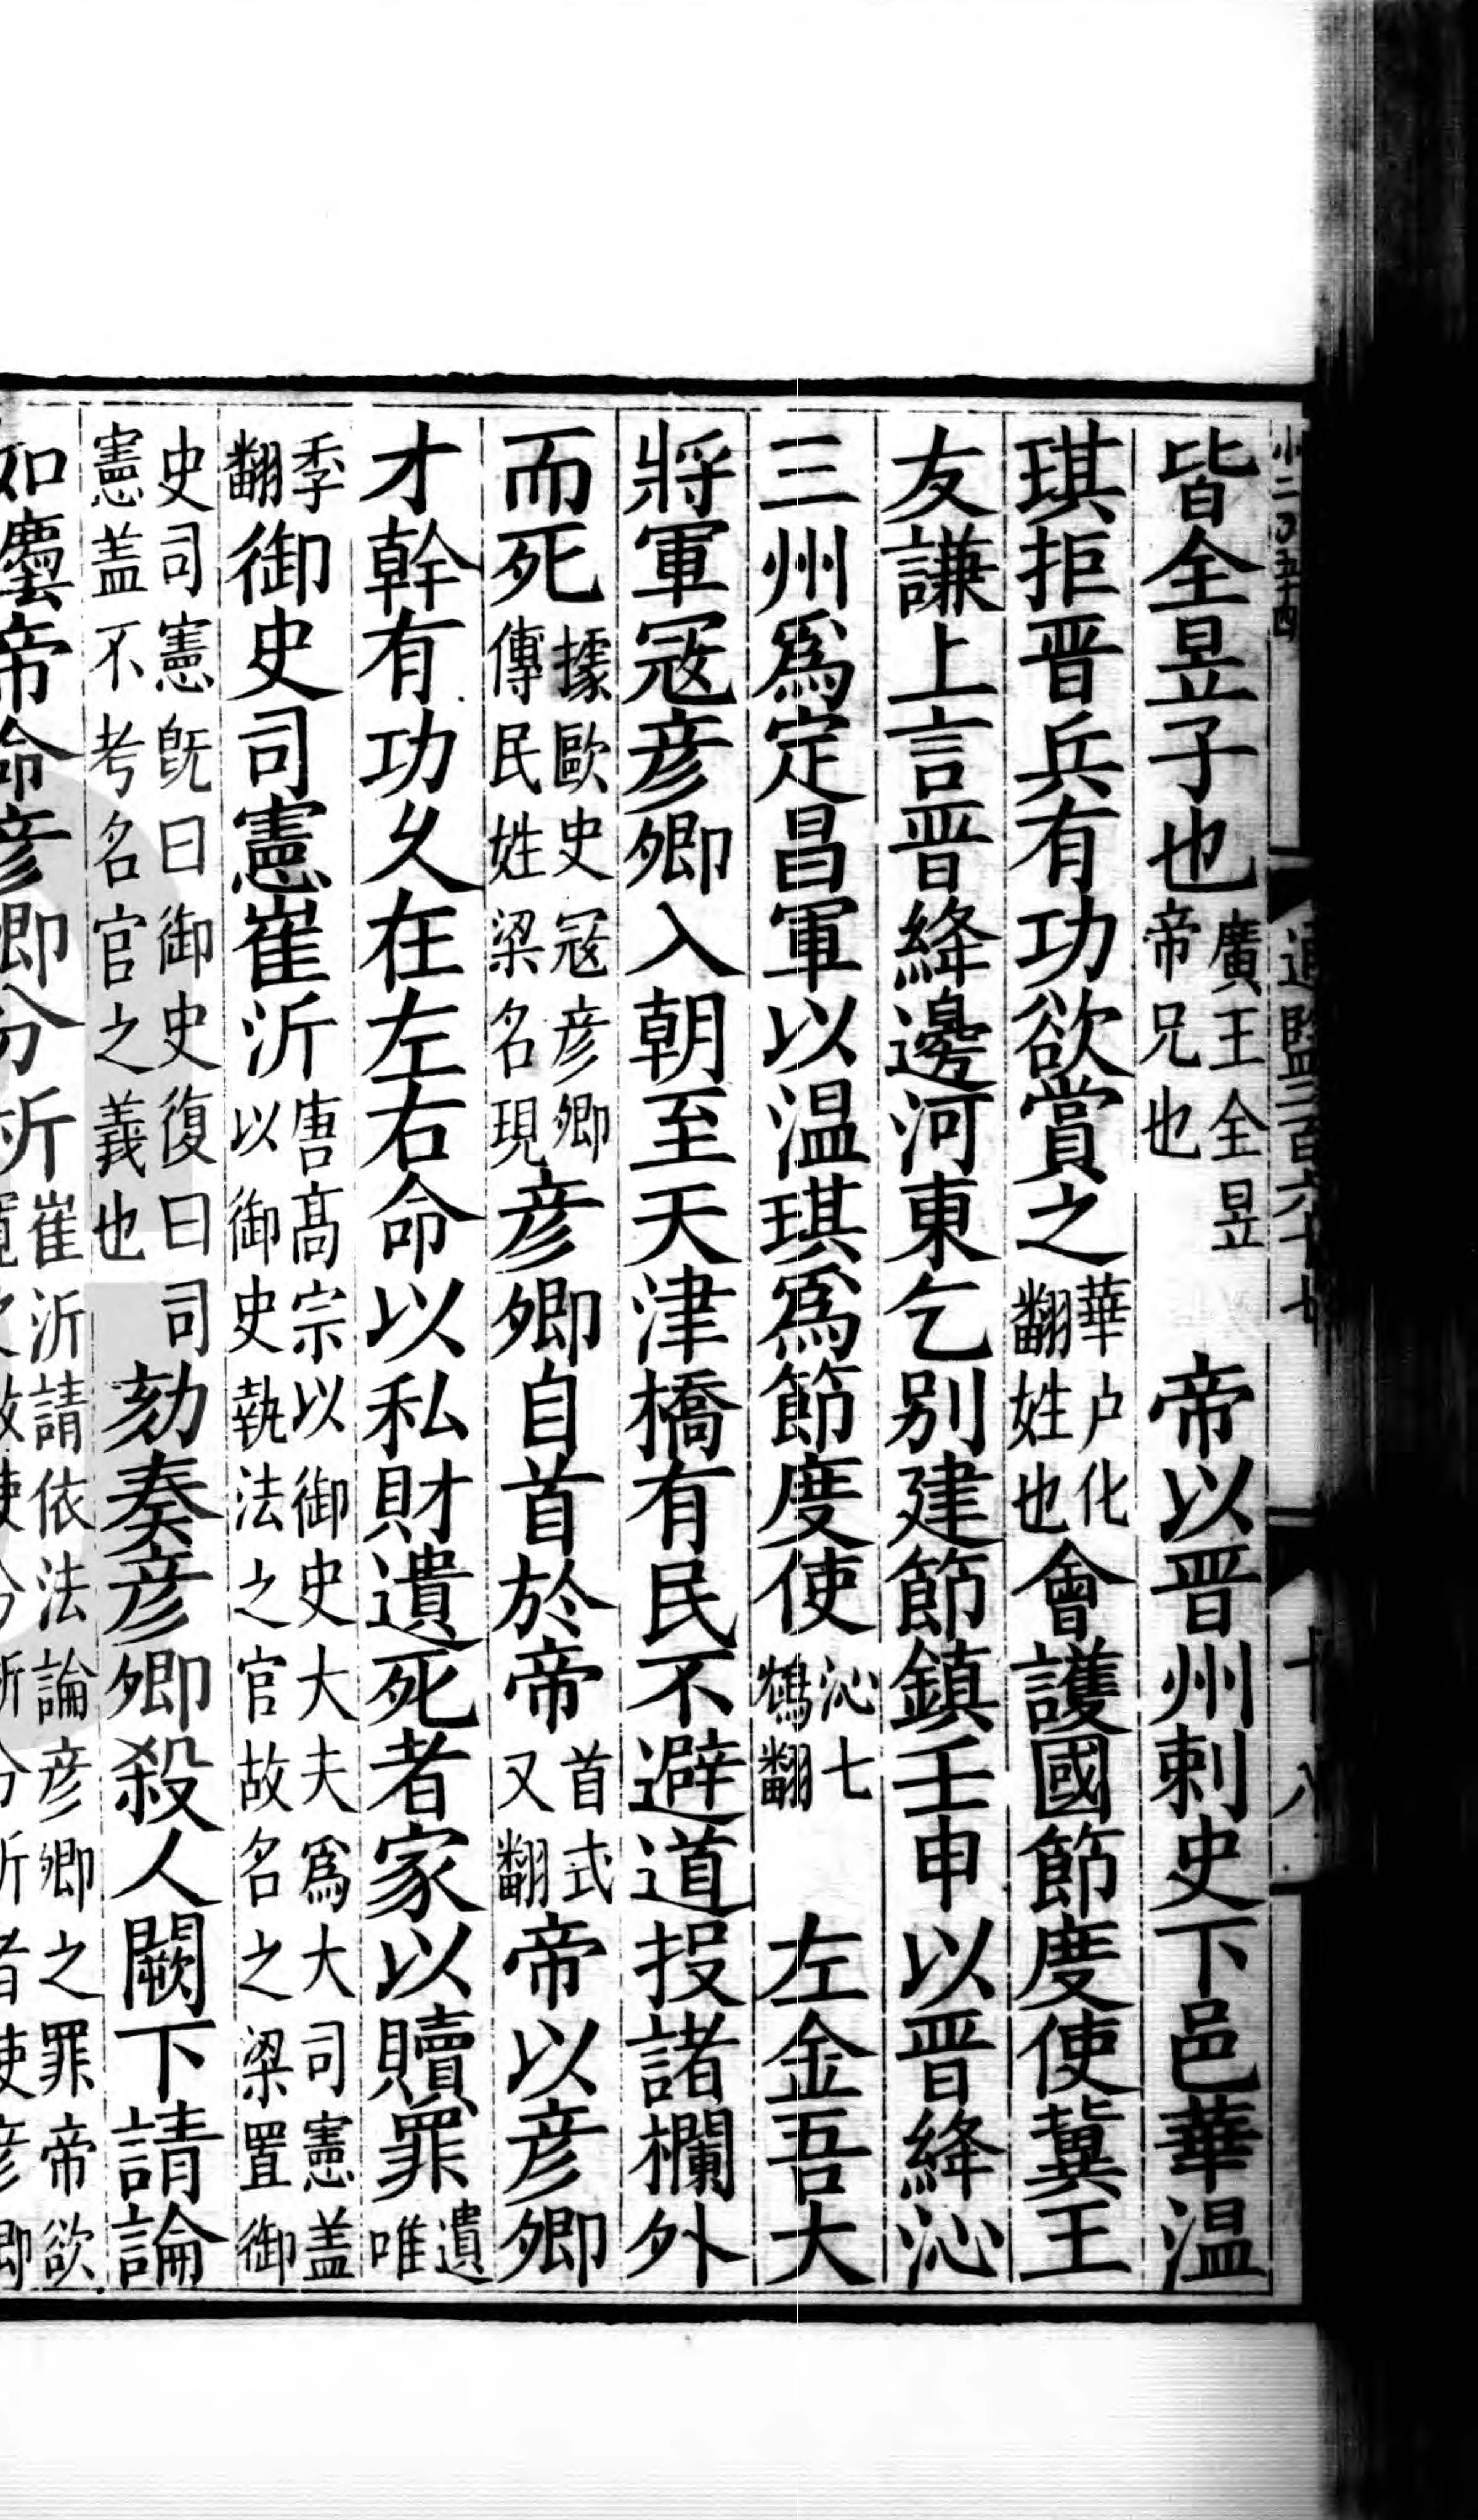 皆全昱子也廣王全昱帝兄也　帝以晋州刺史下邑華温
琪拒晋兵有功欲賞之華户化翻姓也會護國節度使冀王
友謙上言晋絳邊河東乞别建節鎮壬申以晋絳沁
三州爲定昌軍以温琪爲節度使沁七鴆翻　左金吾大
將軍冦彦卿入朝至天津橋有民不避道投諸欄外
而死據歐史冦彦卿傳民姓梁名現彦卿自首於帝首式又翻帝以彦卿
才幹有功久在左右命以私財遺死者家以贖罪遺唯
季翻御史司憲崔沂唐髙宗以御史大夫爲大司憲盖以御史執法之官故名之梁置御
史司憲旣曰御史復曰司憲盖不考名官之義也劾奏彦卿殺人闕下請論
如
帝命彦卿分析崔沂請依法論彦卿之罪帝欲
小二
通鑑二百六十七
十八